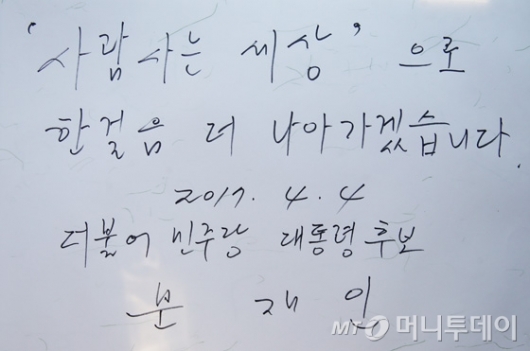 '사람사는 세상' 으로
한걸음 더 나아가겠습니다.
2017. 4. 4
더불어 민주당 대통령 후보
문 재 인
MT 머니투데이